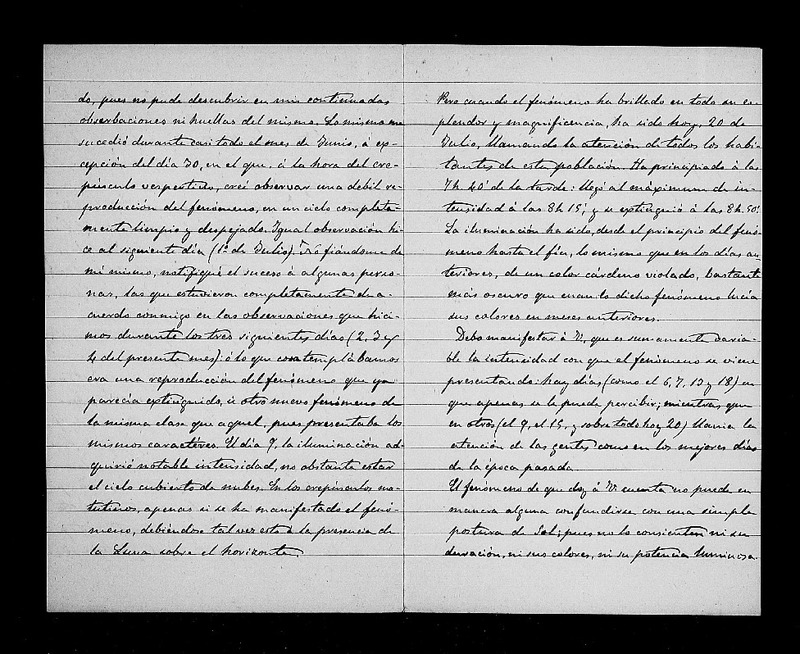 do, pues no pude descubrir en mis continuadas
observaciones ni huellas del mismo. Lo mismo me
sucedió durante casi todo el mes de Junio, á ex-
cepción del día 30, en el que, á la hora del cre-
púsculo vespertino, creí observar una débil re-
producción del fenómeno, en un cielo completa-
mente limpio y despejado. Igual observación hi-
ce al siguiente día (1º de Julio). No fiándome de
mí mismo, notifiqué el suceso á algunas perso-
nas, las que estuvieron completamente de a-
cuerdo conmigo en las observaciones que hici-
mos durante los tres siguientes días (2, 3 y
4 del presente mes): ó lo que contemplábamos
era una reproducción del fenómeno que ya
parecía extinguido, ú otro nuevo fenómeno de
la misma clase que aquel, pues presentaba los
mismos caractéres. El día 9, la iluminación ad-
quirió notable intensidad, no obstante estar
el cielo cubierto de nubes. En los crepúsculos ma-
tutinos, apenas si se ha manifestado el fenó-
meno, debiéndose tal vez esto á la presencia de
la Luna sobre el horizonte.
Pero cuando el fenómeno ha brillado en todo su es-
plendor y magnificencia, ha sido hoy, 20 de
Julio, llamando la atención de todos los habi-
tantes de esta población. Ha principiado á las
7h 40' de la tarde: llegó al máximum de in-
tensidad á las 8h 15', y se extinguió á las 8h 50'.
La iluminación ha sido, desde el principio del fenó-
meno hasta el fín, lo mismo que en los días an-
teriores, de un color cárdeno violado, bastante
más oscuro que cuando dicho fenómeno lucía
sus colores en meses anteriores.
Debo manifestar á V., que es sumamente varia-
ble la intensidad con que el fenómeno se viene
presentando: hay días (como el 6, 7, 13 y 18) en
que apenas se le puede percibir; mientras que
en otros (el 9, el 15, y sobre todo hoy 20) llama la
atención de las gentes como en los mejores días
de la época pasada.
El fenómeno de que doy á V. cuenta no puede en
manera alguna confundirse con una simple
postura de Sol; pues no lo consienten ni su
duración, ni sus colores, ni su potencia luminosa.